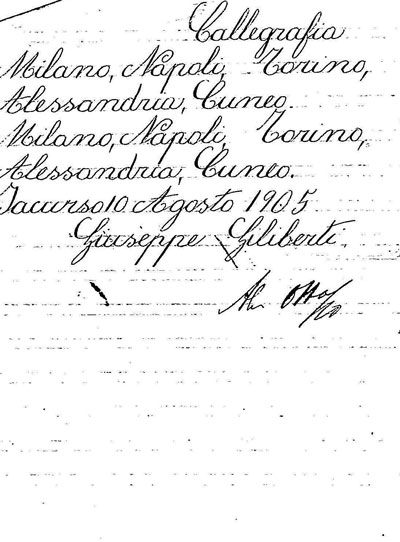 Callegrafia
Milano, Napoli, Torino,
Alessandria, Cuneo.
Milano, Napoli, Torino,
Alessandria, Cuneo.
Jacurso 10 Agosto 1905
Giuseppe Giliberti.